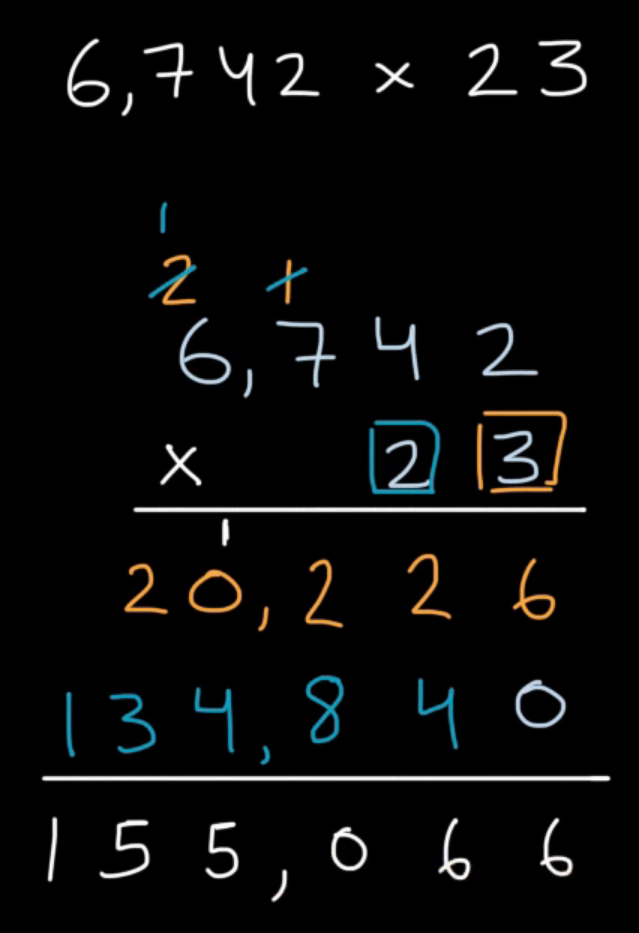 6,742 × 23
1
2 1
6,742
× 23
1
20,226
134,840
155,066